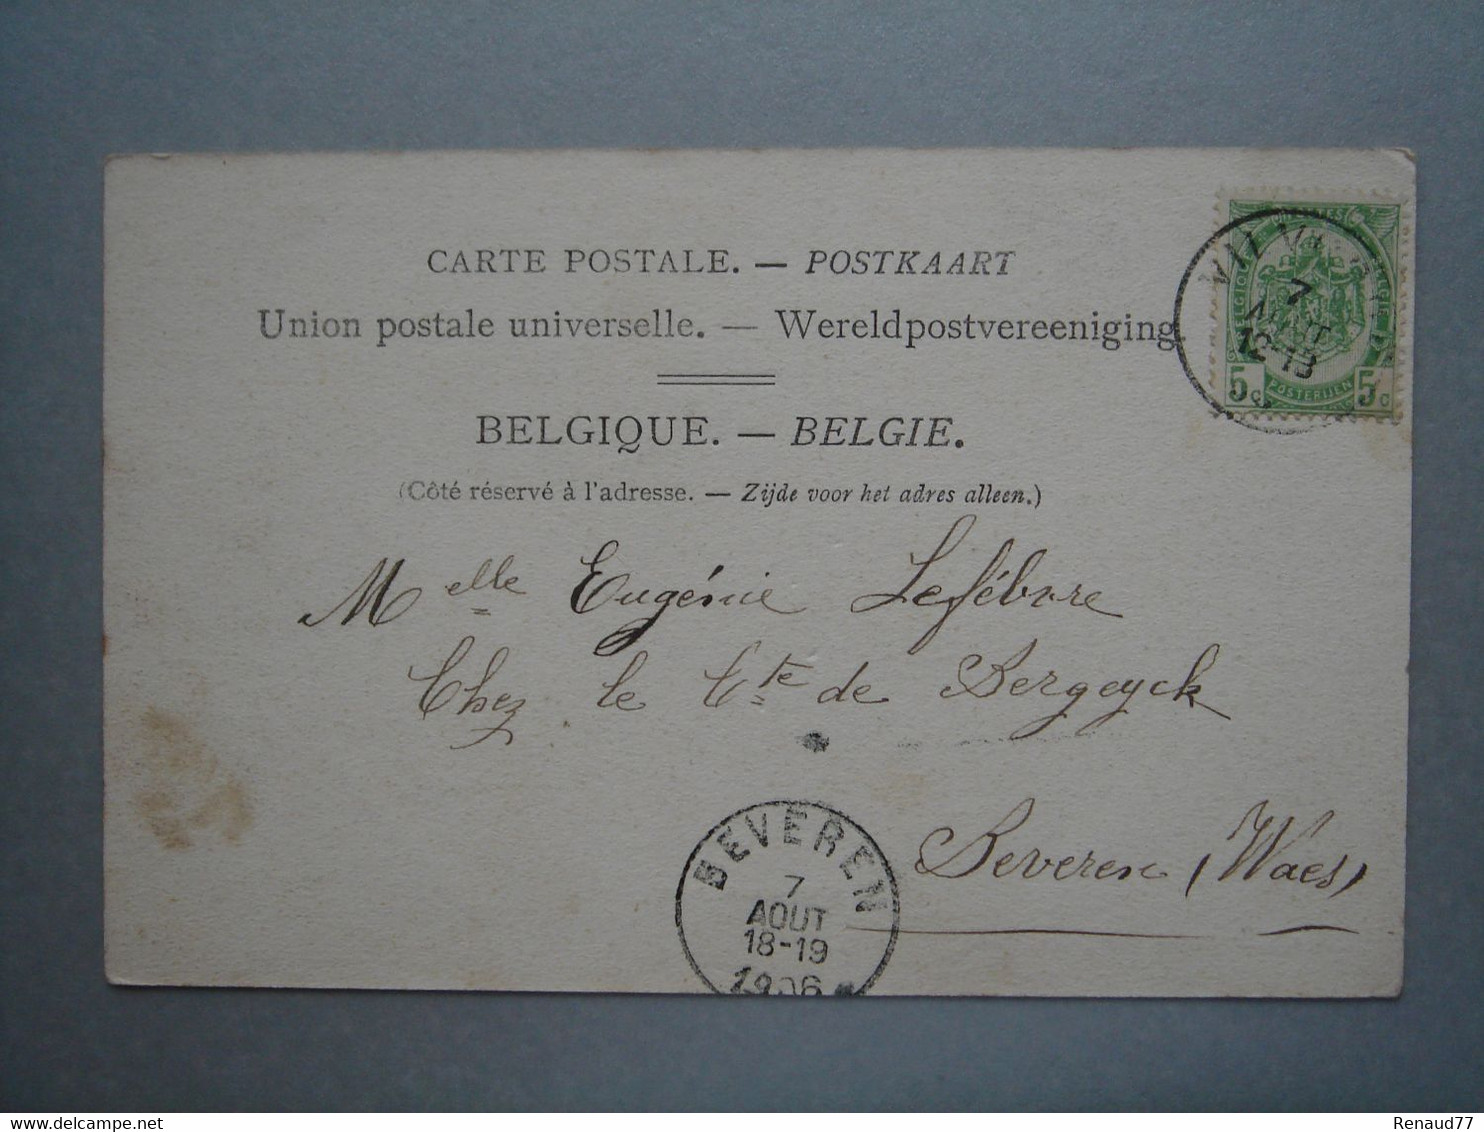 CARTE POSTALE. — POSTKAART
Union postale universelle. — Wereldpostvereeniging
BELGIQUE. — BELGIE.
(Côté réservé à l'adresse. — Zijde voor het adres alleen.)
7
AOUT
12-13
5c POSTERIJEN 5c
Melle Eugénie Lefébvre
Chez le Cte de Bergeyck
Beveren (Waes)
BEVEREN
7
AOUT
18-19
1906
Renaud77